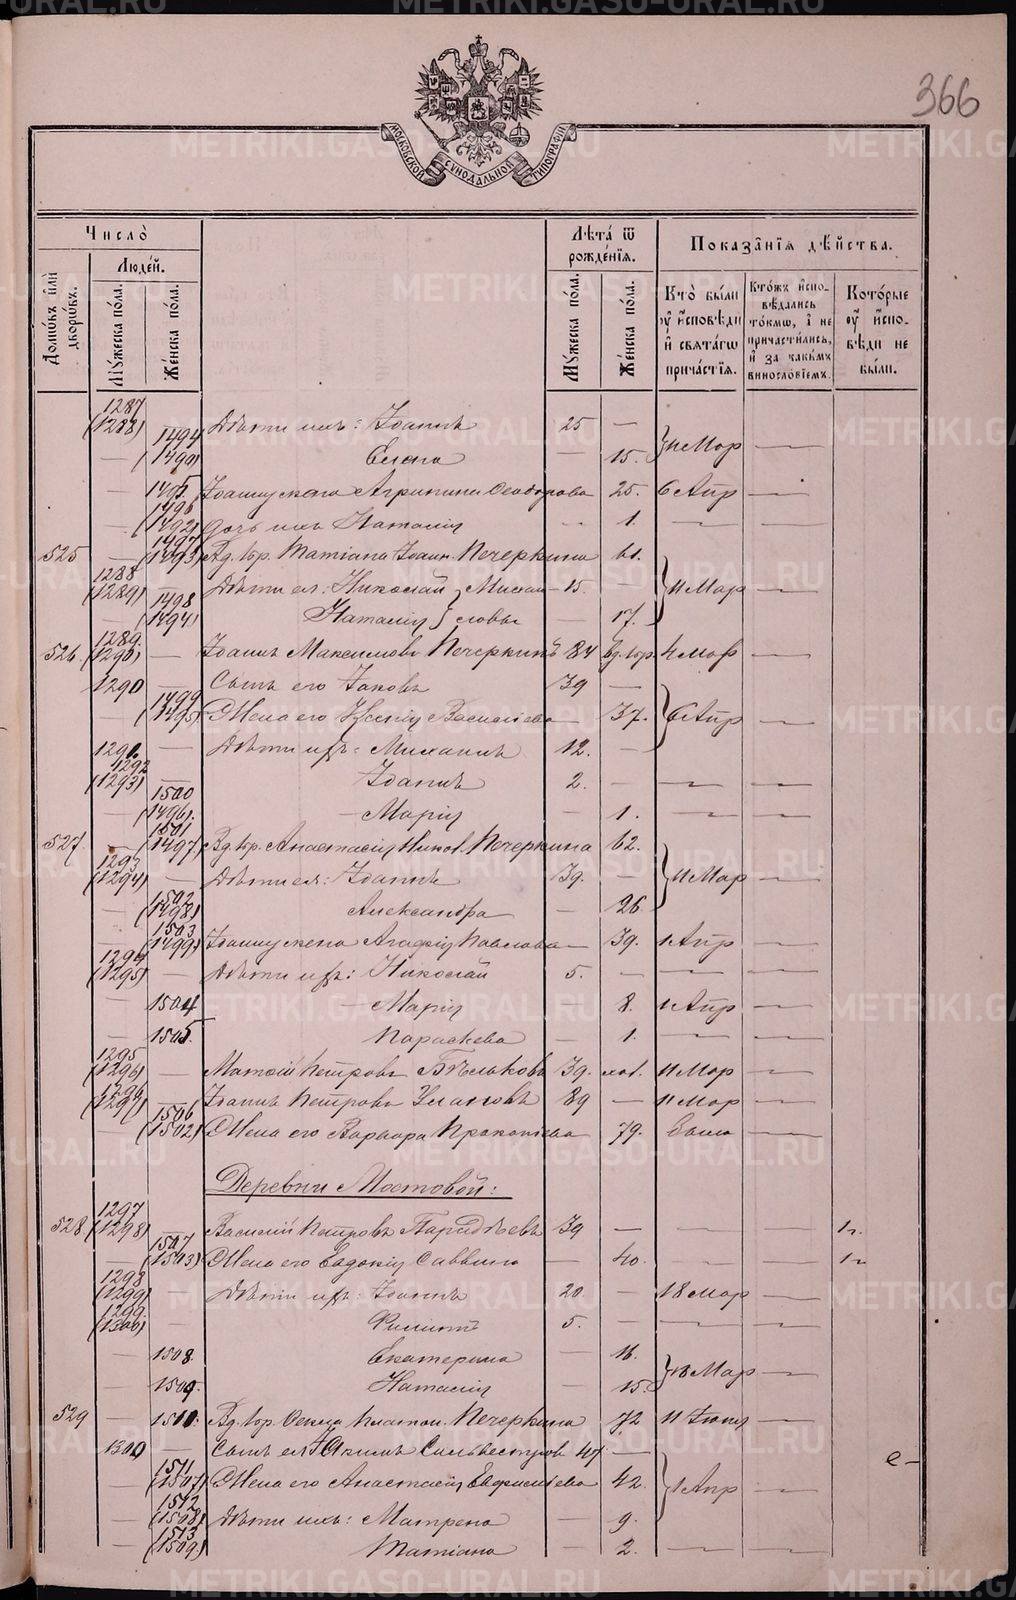 366
МОСКОВСКОЙ СУНОДАЛЬНОЙ ТИПОГРАФІИ
Число̀
Лѣта̀ ѿ рождéнїѧ.
Показа̂нїѧ дѣ́йства.
Людéй.
Домѡ́въ и҆лѝ дворѡ́въ.
Мꙋ́жеска по́ла.
Же́нска по́ла.
Мꙋ́жеска по́ла.
Же́нска по́ла.
Кто̀ бы́ли ᲂу҆ и҆сповѣди и҆ свѧта́гѡ прича́стїѧ.
Кто́жъ и҆спо­вѣдались то́кмѡ, а҆ не причасти́лись, и҆ за каки́мъ винословїемъ.
Кото́рые ᲂу҆ и҆спо­вѣди не бы́ли.
1287 (1288) — Дѣти ихъ: Іоаннъ 25 —
— 1494 (1490) Елена — 15. } 11 Мар —
— 1495. Іоанну жена Агрипина Феодорова 25. 6 Апр —
— 1496 (1492) Дочь ихъ Наталія — 1. — —
525 — 1497 (1493) Вд. кр. Татіана Іоанн. Печеркина 61.
1288 (1289) Дѣти ея: Николай } Михаи— 15. — } 11 Мар —
— 1498 (1494) Наталія } ловы — 17.
526. 1289 (1290) — Іоаннъ Максимовъ Печеркинъ 84 вд. кр. 4 Мар —
1290 — Сынъ его Іаковъ 39 —
— 1499 (1495) Жена его Ксенія Василіева — 37. } 6 Апр —
1291. — Дѣти ихъ: Михаилъ 12. —
1292 (1293) — Іоаннъ 2. — — —
— 1500 (1496). Марія — 1. — —
527. — 1501 (1497) Вд. кр. Анастасія Никол. Печеркина 62.
1293 (1294) — Дѣти ея: Іоаннъ 39. — } 11 Мар —
— 1502 (1498) Александра — 26
— 1503 (1499) Іоанну жена Агафія Павлова — 39. 1 Апр —
1294 (1295) — Дѣти ихъ: Николай 5. — — —
— 1504 Марія 8. 1 Апр —
— 1505. Параскева — 1. — —
1295 (1296) — Матѳій Петровъ Бѣльковъ 39. хол. 11 Мар —
1296 (1297) — Іоаннъ Петровъ 89 — 11 Мар —
— 1506 (1502) Жена его Варвара Прокопіева 79. —
Деревни Мостовой:
528 1297 (1298) Василій Петровъ 39 — — — 1
— 1507 (1503) Жена его Евдокія Саввина 40. — — 1
1298 (1299) — Дѣти ихъ: Іоаннъ 20 — 18 Мар —
1299 (1300) — Филиппъ 5. — — —
— 1508. Екатерина — 16
— 1509. Наталія 15. } 18 Мар —
529 — 1510. Вд. кр. Платон. Печеркина 72 11 Іюня —
1300 — Сынъ ея Іакимъ Сильвестровъ 47 —
— 1511 (1507) Жена его Анастасія 42. } 1 Апр —
— 1512 (1508) Дѣти ихъ: Матрена — 9.
— 1513 (1509) Татіана — 2. — —